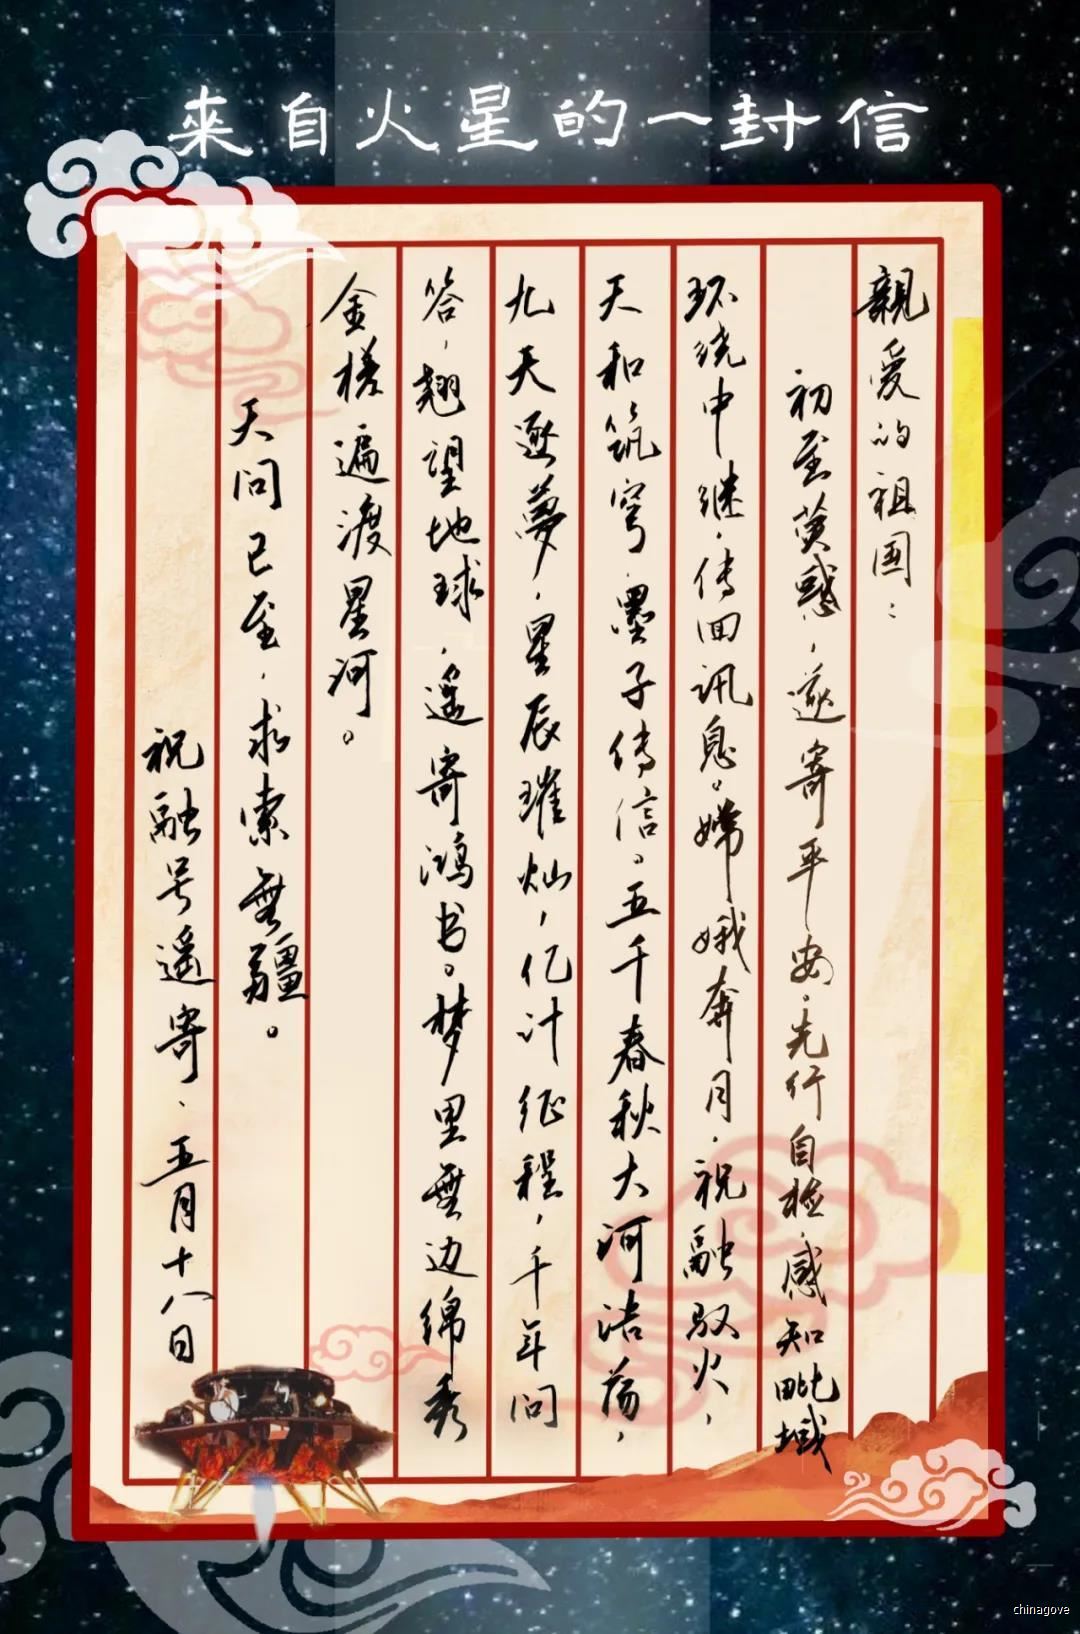 來自火星的一封信
親爱的祖国：
初至荧惑，遥寄平安。先行自检，感知毗域
环绕中继，传回讯息。嫦娥奔月，祝融驭火，
天和筑穹，墨子传信。五千春秋大河浩荡，
九天逐夢，星辰璀灿，亿计征程，千年问
答，翘望地球，遥寄鸿书。梦里無边绵秀
金槎遍渡星河。
天问已至，求索無疆。
祝融号遥寄、五月十八日
chinagove